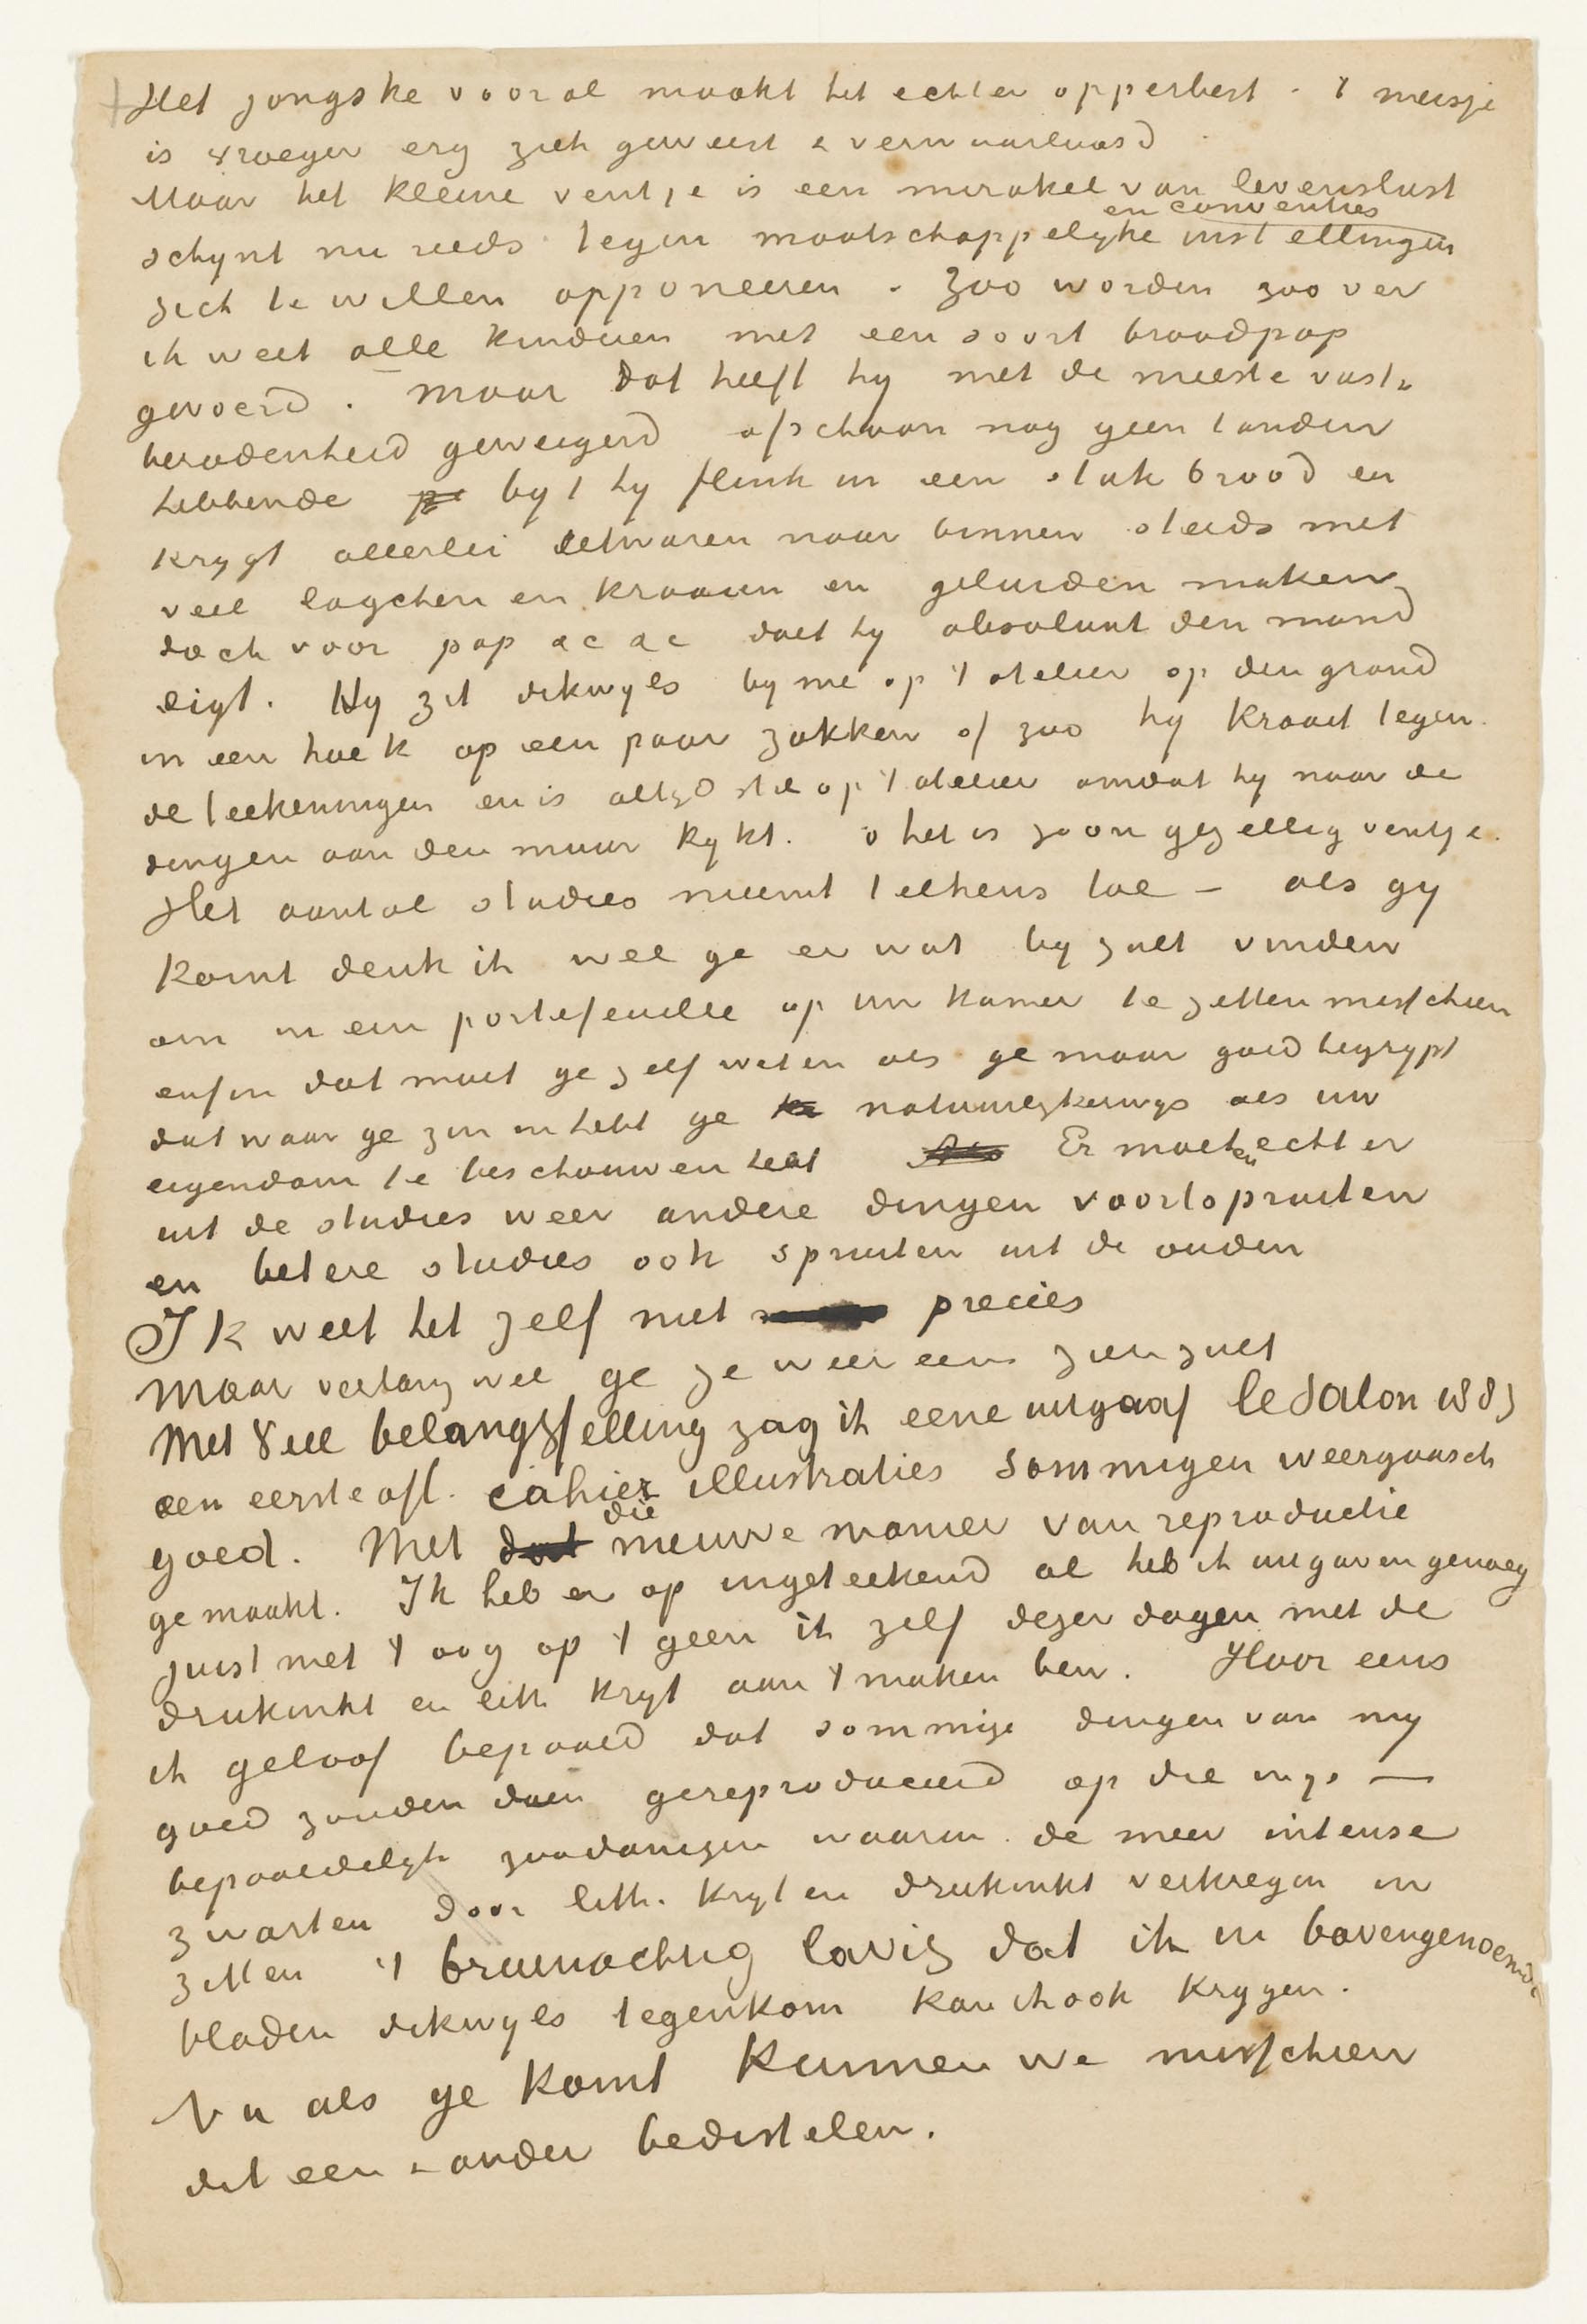 Het jongske vooral maakt het echter opperbest. 't meisje
is vroeger erg ziek geweest & verwaarloosd
Maar het kleine ventje is een mirakel van levenslust
en conventies
schijnt nu reeds tegen maatschappelijke instellingen
zich te willen opponeeren. Zoo worden zoo ver
ik weet alle kinderen met een soort broodpap
gevoerd. Maar dat heeft hij met de meeste vast-
beradenheid geweigerd ofschoon nog geen tanden
hebbende bijt hij flink in een stuk brood en
krijgt allerlei eetwaren naar binnen steeds met
veel lagchen en kraaien en geluiden maken
doch voor pap &c &c doet hij absoluut den mond
digt. Hij zit dikwijls bij me op 't atelier op den grond
in een hoek op een paar zakken of zoo hij kraait tegen
de teekeningen en is altijd stil op 't atelier omdat hij naar de
dingen aan den muur kijkt. o het is zoon gezellig ventje.
Het aantal studies neemt telkens toe – als gij
komt denk ik wel ge er wat bij zult vinden
om in een portefeuille op uw kamer te zetten misschien
enfin dat moet ge zelf weten als ge maar goed begrijpt
dat waar ge zin in hebt ge natuurlijkerwijs als uw
eigendom te beschouwen hebt Er moeten echter
uit de studies weer andere dingen voortspruiten
en betere studies ook spruiten uit de ouden
Ik weet het zelf niet precies
Maar verlang wel ge ze weer eens zien zult
Met veel belangstelling zag ik eene uitgaaf le Salon 1883
een eerste afl. cahier illustraties sommigen weergaasch
goed. Met die nieuwe manier van reproductie
gemaakt. Ik heb er op ingeteekend al heb ik uitgaven genoeg
juist met 't oog op 't geen ik zelf dezer dagen met de
drukinkt en lith. krijt aan 't maken ben. Hoor eens
ik geloof bepaald dat sommige dingen van mij
goed zouden doen gereproduceerd op die wijs —
bepaaldelijk zoodanigen waarin de meer intense
zwarten door lith. krijt en drukinkt verkregen in
zitten 't bruinachtig lavis dat ik in bovengenoemde
bladen dikwijls tegenkom kan ik ook krijgen.
Nu als ge komt kunnen we misschien
dit een & ander bedistelen.